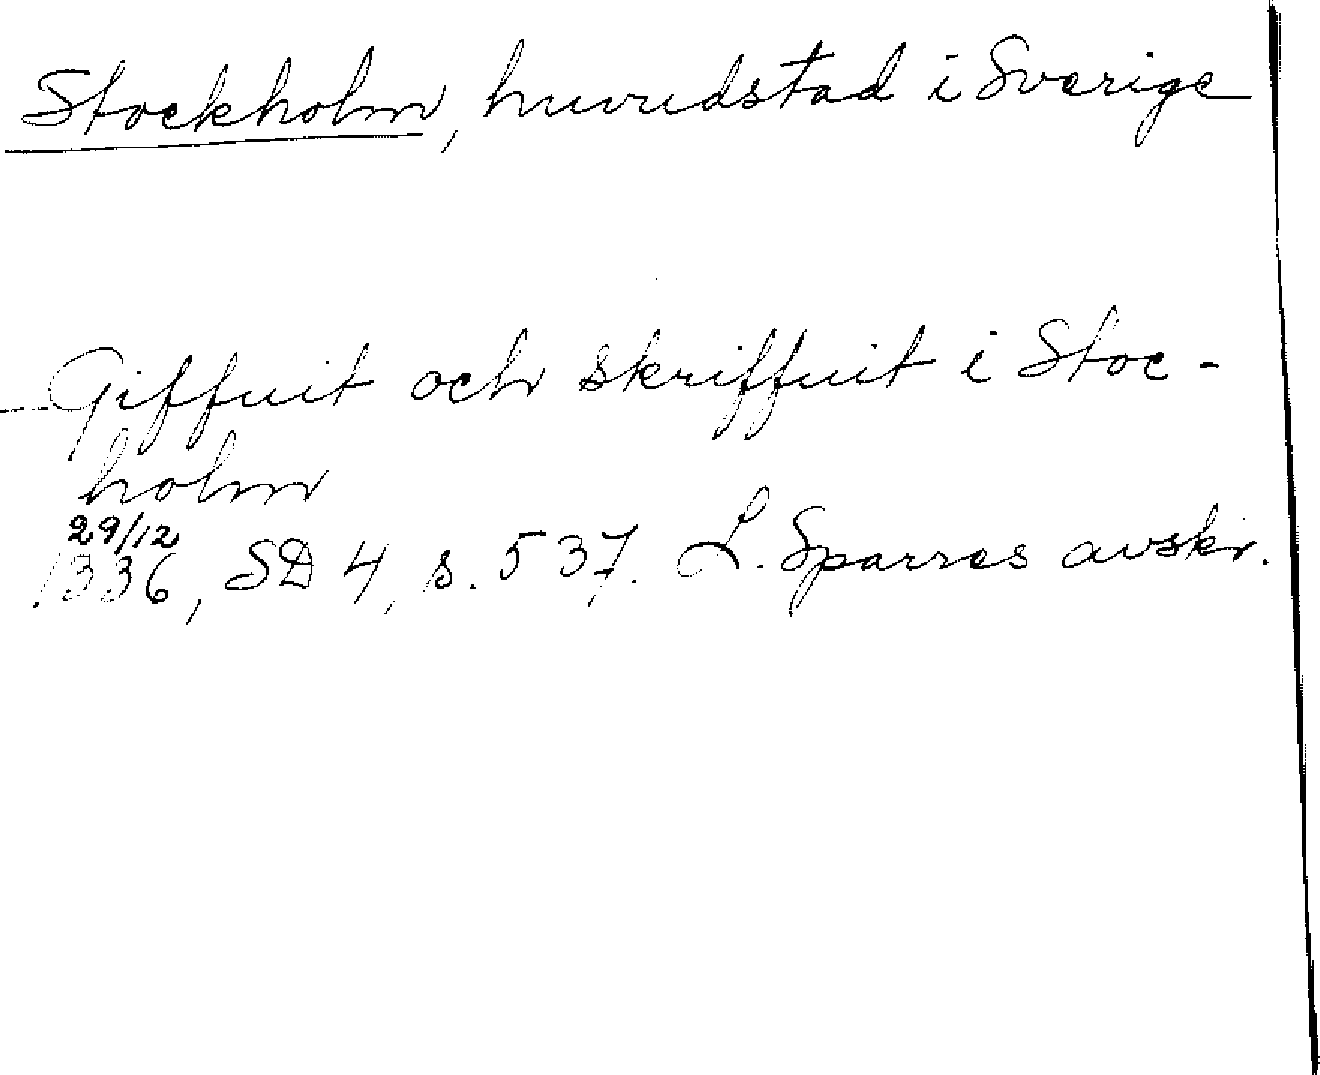 Stockholm, huvudstad i Sverige
Giffuit och skriffuit i Stoc-
holm
29/12
1336, SD 4, s. 537. L. Sparres avskr.